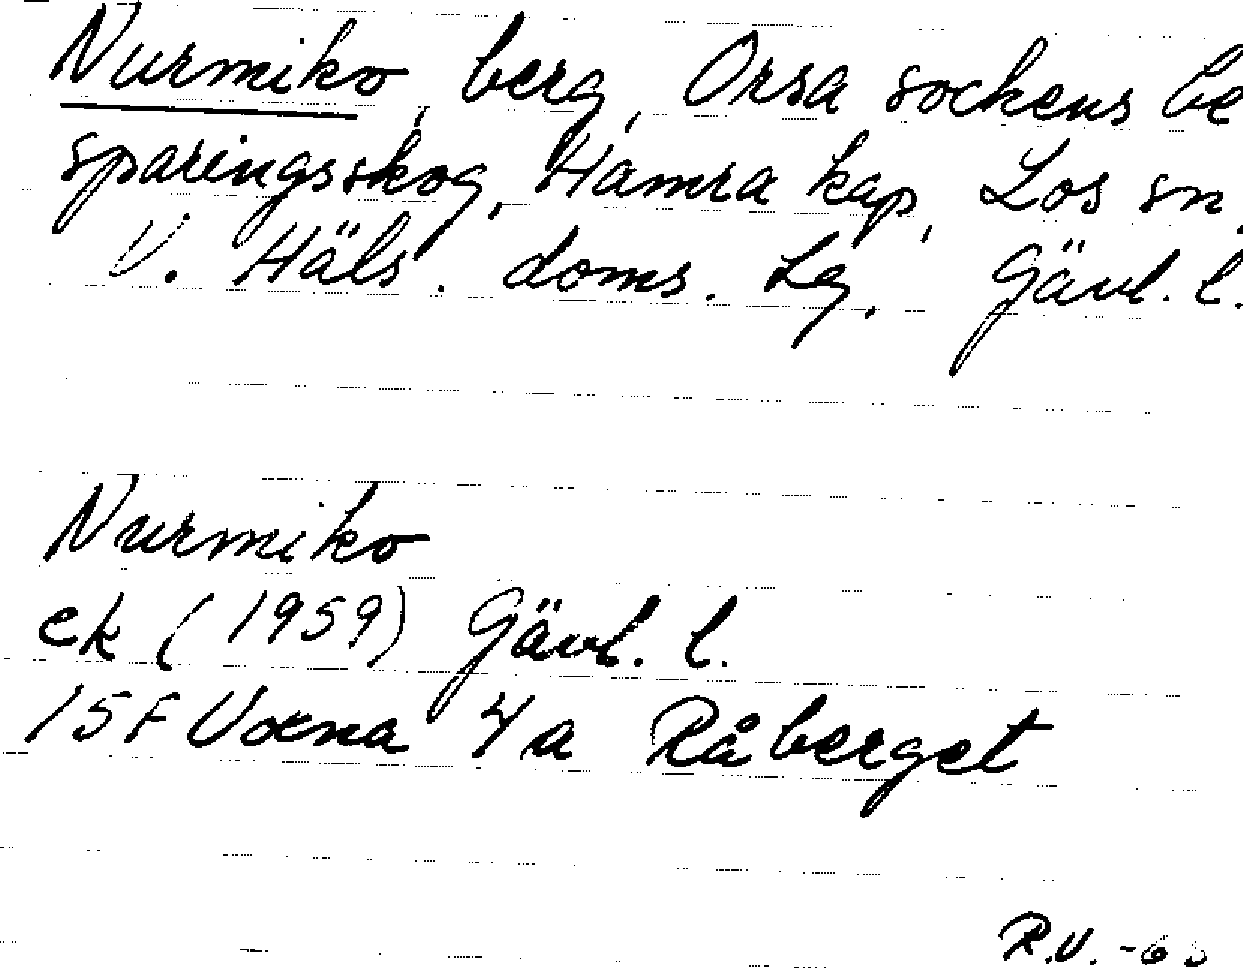 Nurmiko, berg, Orsa sockens be
sparingsskog, Hamra kap, Los sn.
V. Häls. doms. Lg. Gävl. l.
Nurmiko
ek (1959) Gävl. l.
15F Voxna 4a Råberget
R.V.